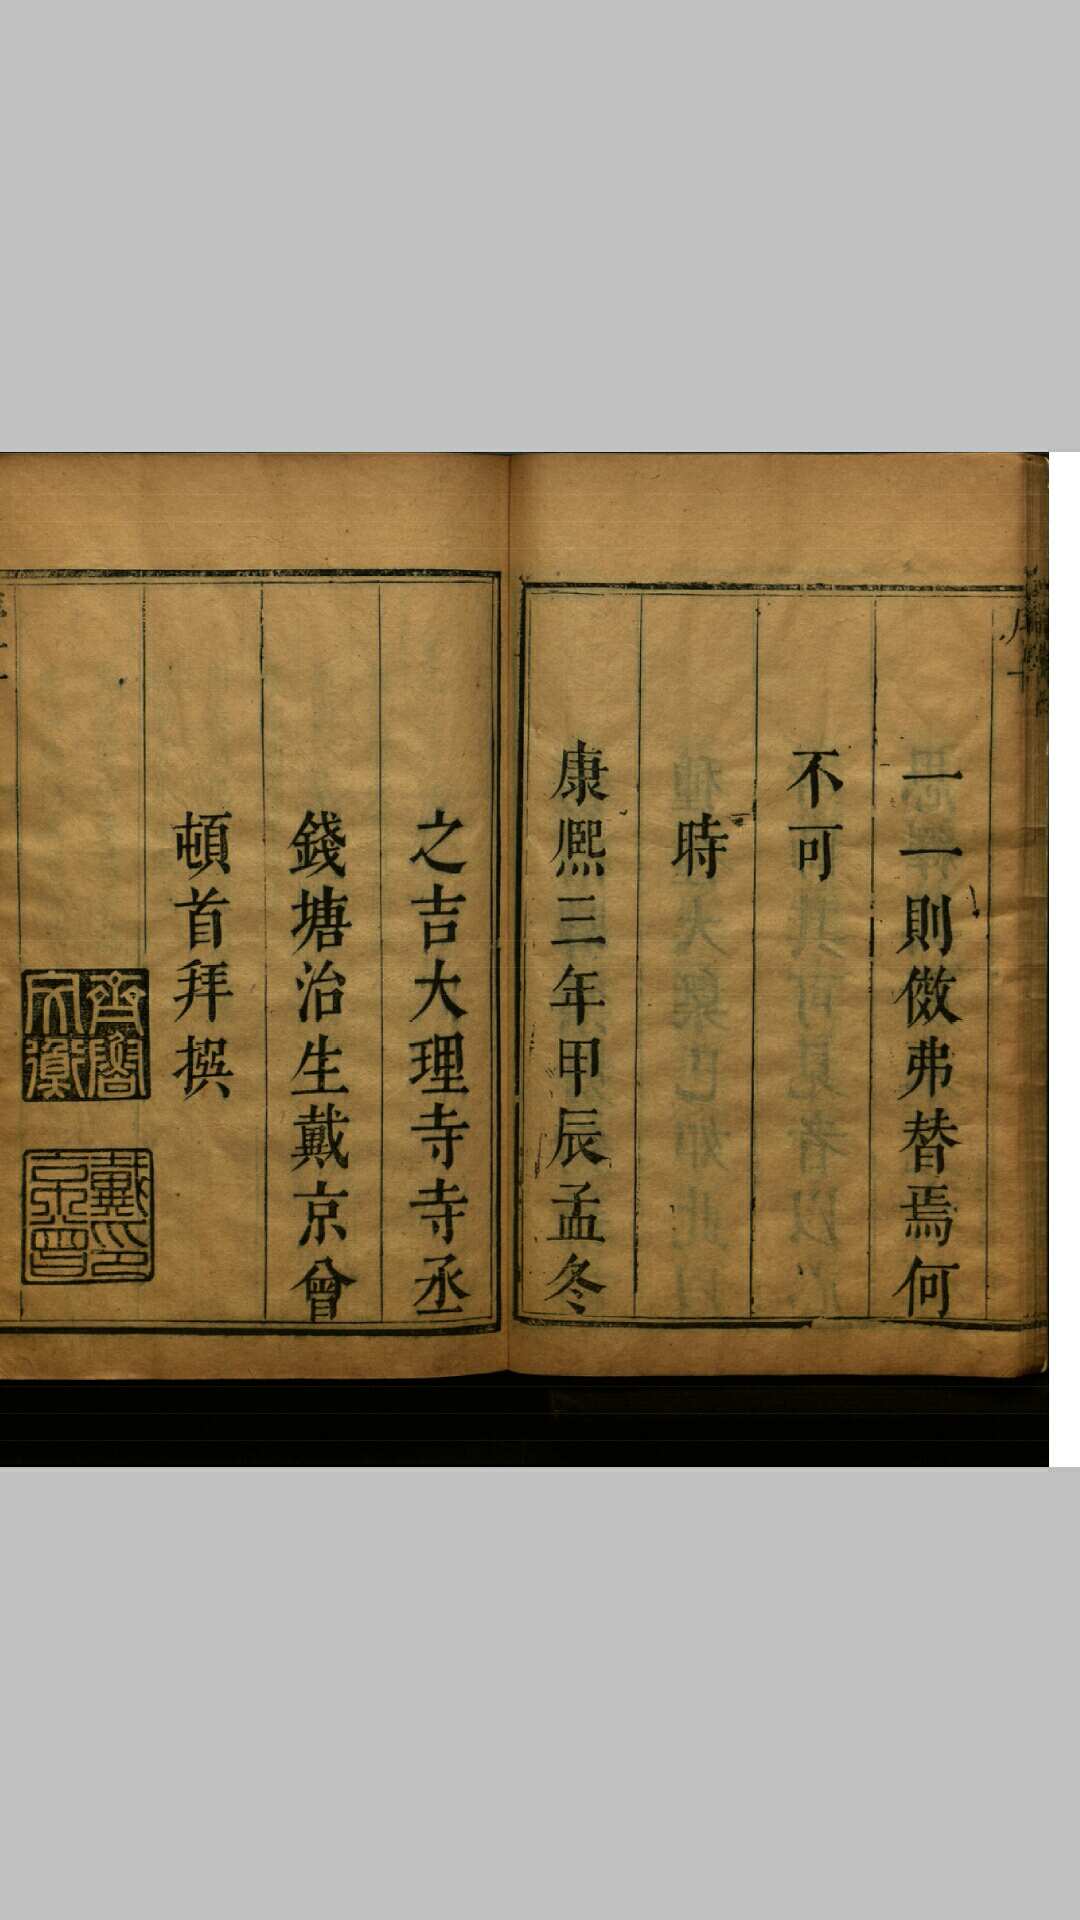 一一則儆弗替焉何
不可
時
康熙三年甲辰孟冬
之吉大理寺寺丞
錢塘治生戴京曾
頓首拜撰
戴京曾印